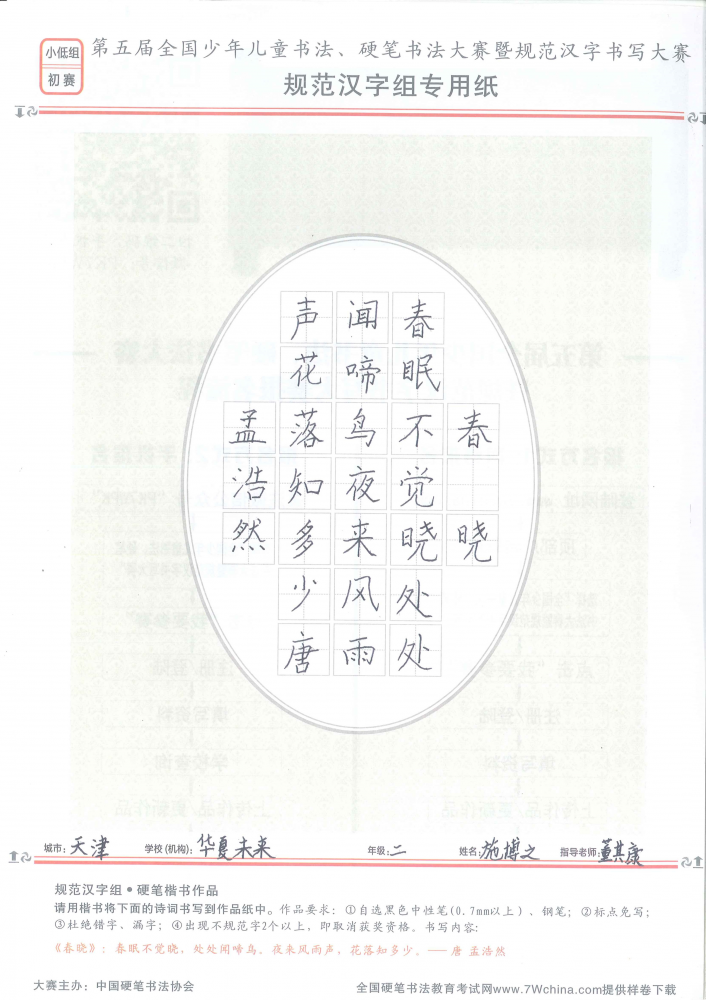 小低组
初赛
第五届全国少年儿童书法、硬笔书法大赛暨规范汉字书写大赛
规范汉字组专用纸
春晓
春眠不觉晓处处
闻啼鸟夜来风雨
声花落知多少唐
孟浩然
城市：天津 学校(机构)：华夏未来 年级：二 姓名：施博之 指导老师：董其康
规范汉字组•硬笔楷书作品
请用楷书将下面的诗词书写到作品纸中。作品要求：①自选黑色中性笔(0.7mm以上)、钢笔；②标点免写；
③杜绝错字、漏字；④出现不规范字2个以上，即取消获奖资格。书写内容：
《春晓》：春眠不觉晓，处处闻啼鸟。夜来风雨声，花落知多少。——唐 孟浩然
大赛主办：中国硬笔书法协会 全国硬笔书法教育考试网www.7Wchina.com提供样卷下载